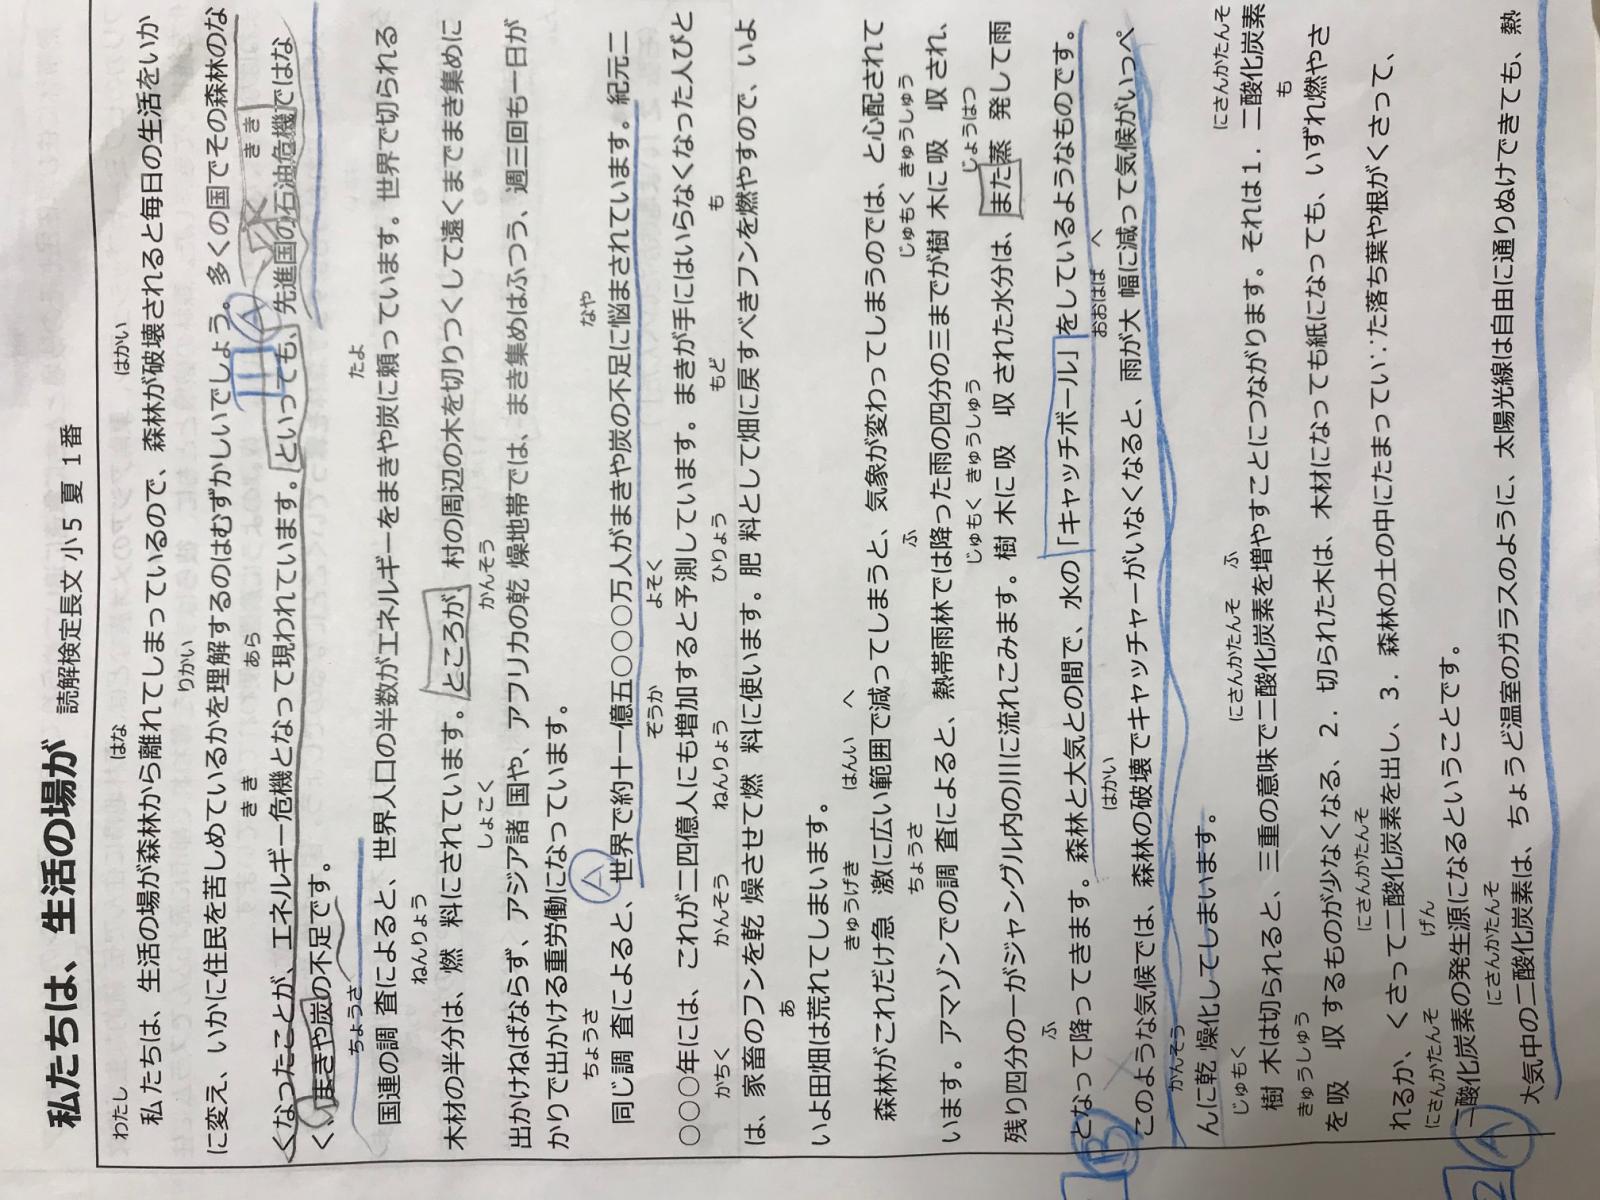 私たちは、生活の場が 読解検定長文 小5 夏 1番
わたし はな はかい
私たちは、生活の場が森林から離れてしまっているので、森林が破壊されると毎日の生活をいか
りかい
に変え、いかに住民を苦しめているかを理解するのはむずかしいでしょう。多くの国でその森林のな
きき あら きき
くなったことが、エネルギー危機となって現われています。といっても、先進国の石油危機ではな
く、まきや炭の不足です。
ちょうさ たよ
国連の調査によると、世界人口の半数がエネルギーをまきや炭に頼っています。世界で切られる
ねんりょう
木材の半分は、燃料にされています。ところが、村の周辺の木を切りつくして遠くまでまき集めに
しょこく かんそう
出かけねばならず、アジア諸国や、アフリカの乾燥地帯では、まき集めはふつう、週三回も一日が
かりで出かける重労働になっています。
ちょうさ なや
同じ調査によると、世界で約十一億五〇〇〇万人がまきや炭の不足に悩まされています。紀元二
ぞうか よそく
〇〇〇年には、これが二四億人にも増加すると予測しています。まきが手にはいらなくなった人びと
かちく かんそう ねんりょう ひりょう もど も
は、家畜のフンを乾燥させて燃料に使います。肥料として畑に戻すべきフンを燃やすので、いよ
あ
いよ田畑は荒れてしまいます。
きゅうげき はんい へ
森林がこれだけ急激に広い範囲で減ってしまうと、気象が変わってしまうのでは、と心配されて
ちょうさ ふ じゅもく きゅうしゅう
います。アマゾンでの調査によると、熱帯雨林では降った雨の四分の三までが樹木に吸収され、
じゅもく きゅうしゅう じょうはつ
残り四分の一がジャングル内の川に流れこみます。樹木に吸収された水分は、また蒸発して雨
ふ
となって降ってきます。森林と大気との間で、水の「キャッチボール」をしているようなものです。
はかい おおはば へ
このような気候では、森林の破壊でキャッチャーがいなくなると、雨が大幅に減って気候がいっぺ
かんそう
んに乾燥化してしまいます。
じゅもく にさんかたんそ ふ にさんかたんそ
樹木は切られると、三重の意味で二酸化炭素を増やすことにつながります。それは1.二酸化炭素
きゅうしゅう も
を吸収するものが少なくなる、2.切られた木は、木材になっても紙になっても、いずれ燃やさ
にさんかたんそ
れるか、くさって二酸化炭素を出し、3.森林の土の中にたまってい∵た落ち葉や根がくさって、
にさんかたんそ げん
二酸化炭素の発生源になるということです。
にさんかたんそ
大気中の二酸化炭素は、ちょうど温室のガラスのように、太陽光線は自由に通りぬけできても、熱
1
A
A
1
B
2
A